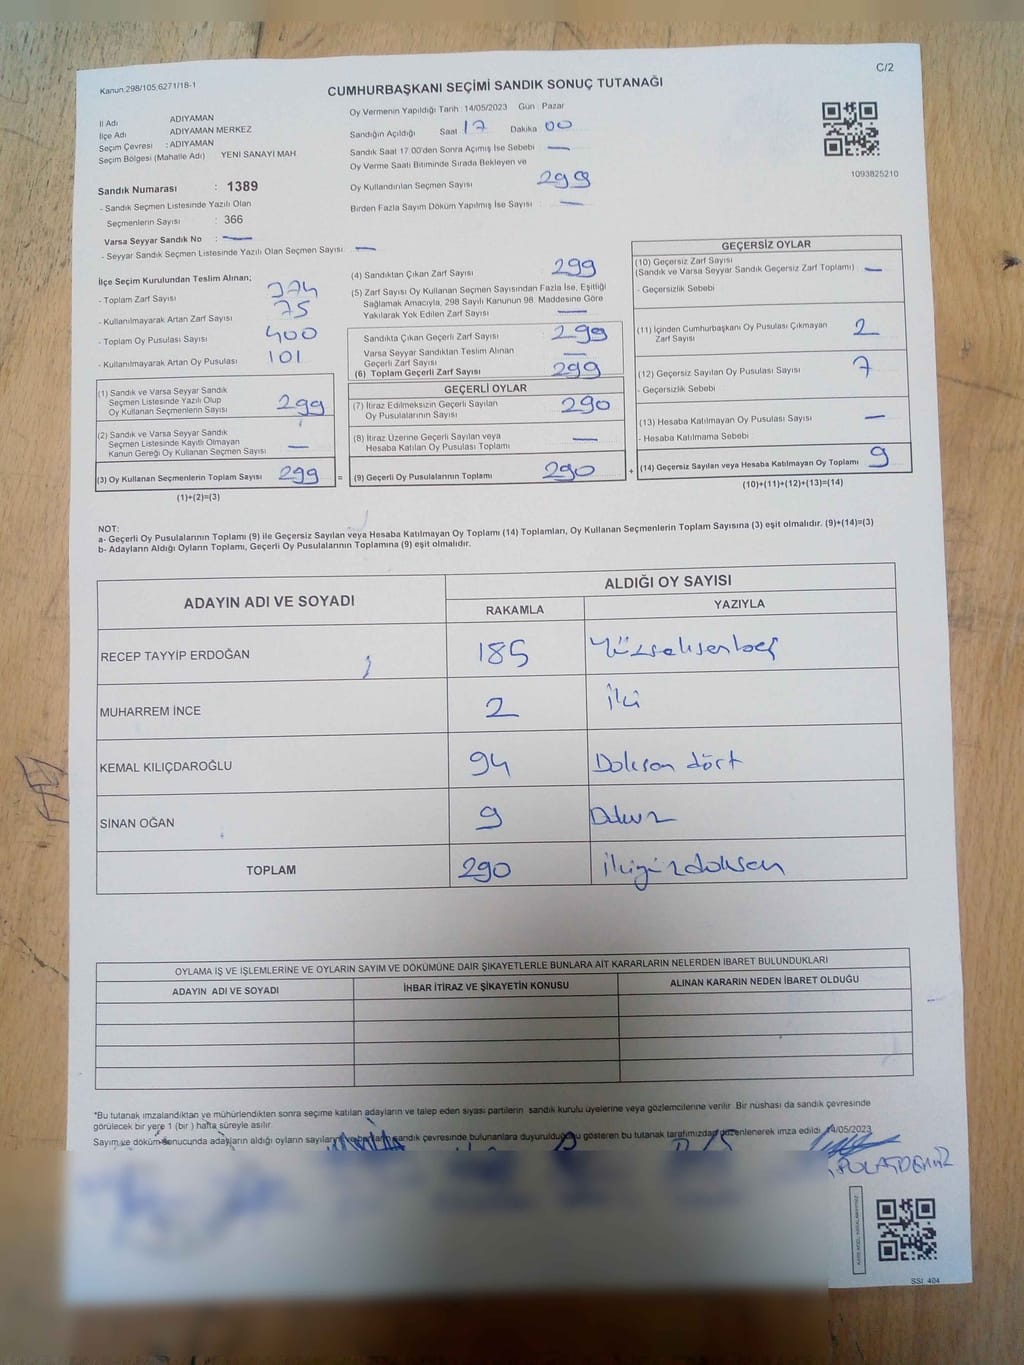 C/2
Kanun:298/105,6271/18-1
CUMHURBAŞKANI SEÇİMİ SANDIK SONUÇ TUTANAĞI
İl Adı ADIYAMAN
İlçe Adı ADIYAMAN MERKEZ
Seçim Çevresi : ADIYAMAN
Seçim Bölgesi (Mahalle Adı) YENİ SANAYİ MAH
Sandık Numarası : 1389
- Sandık Seçmen Listesinde Yazılı Olan
Seçmenlerin Sayısı : 366
Varsa Seyyar Sandık No : —
- Seyyar Sandık Seçmen Listesinde Yazılı Olan Seçmen Sayısı: —
Oy Vermenin Yapıldığı Tarih 14/05/2023 Gün : Pazar
Sandığın Açıldığı Saat 17 Dakika 00
Sandık Saat 17:00'den Sonra Açımış İse Sebebi —
Oy Verme Saati Bitiminde Sırada Bekleyen ve
Oy Kullandırılan Seçmen Sayısı 299
Birden Fazla Sayım Döküm Yapılmış İse Sayısı : —
1093825210
İlçe Seçim Kurulundan Teslim Alınan;
- Toplam Zarf Sayısı 374
- Kullanılmayarak Artan Zarf Sayısı 75
- Toplam Oy Pusulası Sayısı 400
- Kullanılmayarak Artan Oy Pusulası 101
(1) Sandık ve Varsa Seyyar Sandık
Seçmen Listesinde Yazılı Olup
Oy Kullanan Seçmenlerin Sayısı 299
(2) Sandık ve Varsa Seyyar Sandık
Seçmen Listesinde Kayıtlı Olmayan
Kanun Gereği Oy Kullanan Seçmen Sayısı —
(3) Oy Kullanan Seçmenlerin Toplam Sayısı 299 =
(1)+(2)=(3)
(4) Sandıktan Çıkan Zarf Sayısı 299
(5) Zarf Sayısı Oy Kullanan Seçmen Sayısından Fazla İse, Eşitliği
Sağlamak Amacıyla, 298 Sayılı Kanunun 98. Maddesine Göre
Yakılarak Yok Edilen Zarf Sayısı —
Sandıkta Çıkan Geçerli Zarf Sayısı 299
Varsa Seyyar Sandıktan Teslim Alınan
Geçerli Zarf Sayısı —
(6) Toplam Geçerli Zarf Sayısı 299
GEÇERLİ OYLAR
(7) İtiraz Edilmeksizin Geçerli Sayılan
Oy Pusulalarının Sayısı 290
(8) İtiraz Üzerine Geçerli Sayılan veya
Hesaba Katılan Oy Pusulası Toplamı —
(9) Geçerli Oy Pusulalarının Toplamı 290 +
GEÇERSİZ OYLAR
(10) Geçersiz Zarf Sayısı
(Sandık ve Varsa Seyyar Sandık Geçersiz Zarf Toplamı) —
- Geçersizlik Sebebi
(11) İçinden Cumhurbaşkanı Oy Pusulası Çıkmayan
Zarf Sayısı 2
(12) Geçersiz Sayılan Oy Pusulası Sayısı 7
- Geçersizlik Sebebi
(13) Hesaba Katılmayan Oy Pusulası Sayısı —
- Hesaba Katılmama Sebebi
(14) Geçersiz Sayılan veya Hesaba Katılmayan Oy Toplamı 9
(10)+(11)+(12)+(13)=(14)
NOT:
a- Geçerli Oy Pusulalarının Toplamı (9) ile Geçersiz Sayılan veya Hesaba Katılmayan Oy Toplamı (14) Toplamları, Oy Kullanan Seçmenlerin Toplam Sayısına (3) eşit olmalıdır. (9)+(14)=(3)
b- Adayların Aldığı Oyların Toplamı, Geçerli Oy Pusulalarının Toplamına (9) eşit olmalıdır.
ADAYIN ADI VE SOYADI
ALDIĞI OY SAYISI
RAKAMLA YAZIYLA
RECEP TAYYİP ERDOĞAN 185 Yüzseksenbeş
MUHARREM İNCE 2 İki
KEMAL KILIÇDAROĞLU 94 Doksan dört
SİNAN OĞAN 9 Dokuz
TOPLAM 290 İkiyüzdoksan
OYLAMA İŞ VE İŞLEMLERİNE VE OYLARIN SAYIM VE DÖKÜMÜNE DAİR ŞİKAYETLERLE BUNLARA AİT KARARLARIN NELERDEN İBARET BULUNDUKLARI
ADAYIN ADI VE SOYADI İHBAR İTİRAZ VE ŞİKAYETİN KONUSU ALINAN KARARIN NEDEN İBARET OLDUĞU
*Bu tutanak imzalandıktan ve mühürlendikten sonra seçime katılan adayların ve talep eden siyasi partilerin sandık kurulu üyelerine veya gözlemcilerine verilir. Bir nüshası da sandık çevresinde
görülecek bir yere 1 (bir) hafta süreyle asılır.
Sayım ve döküm sonucunda adayların aldığı oyların sayıları sandık çevresinde bulunanlara duyurulduğunu gösteren bu tutanak tarafımızdan düzenlenerek imza edildi. 14/05/2023
POLATDEMİR
SSİ 404